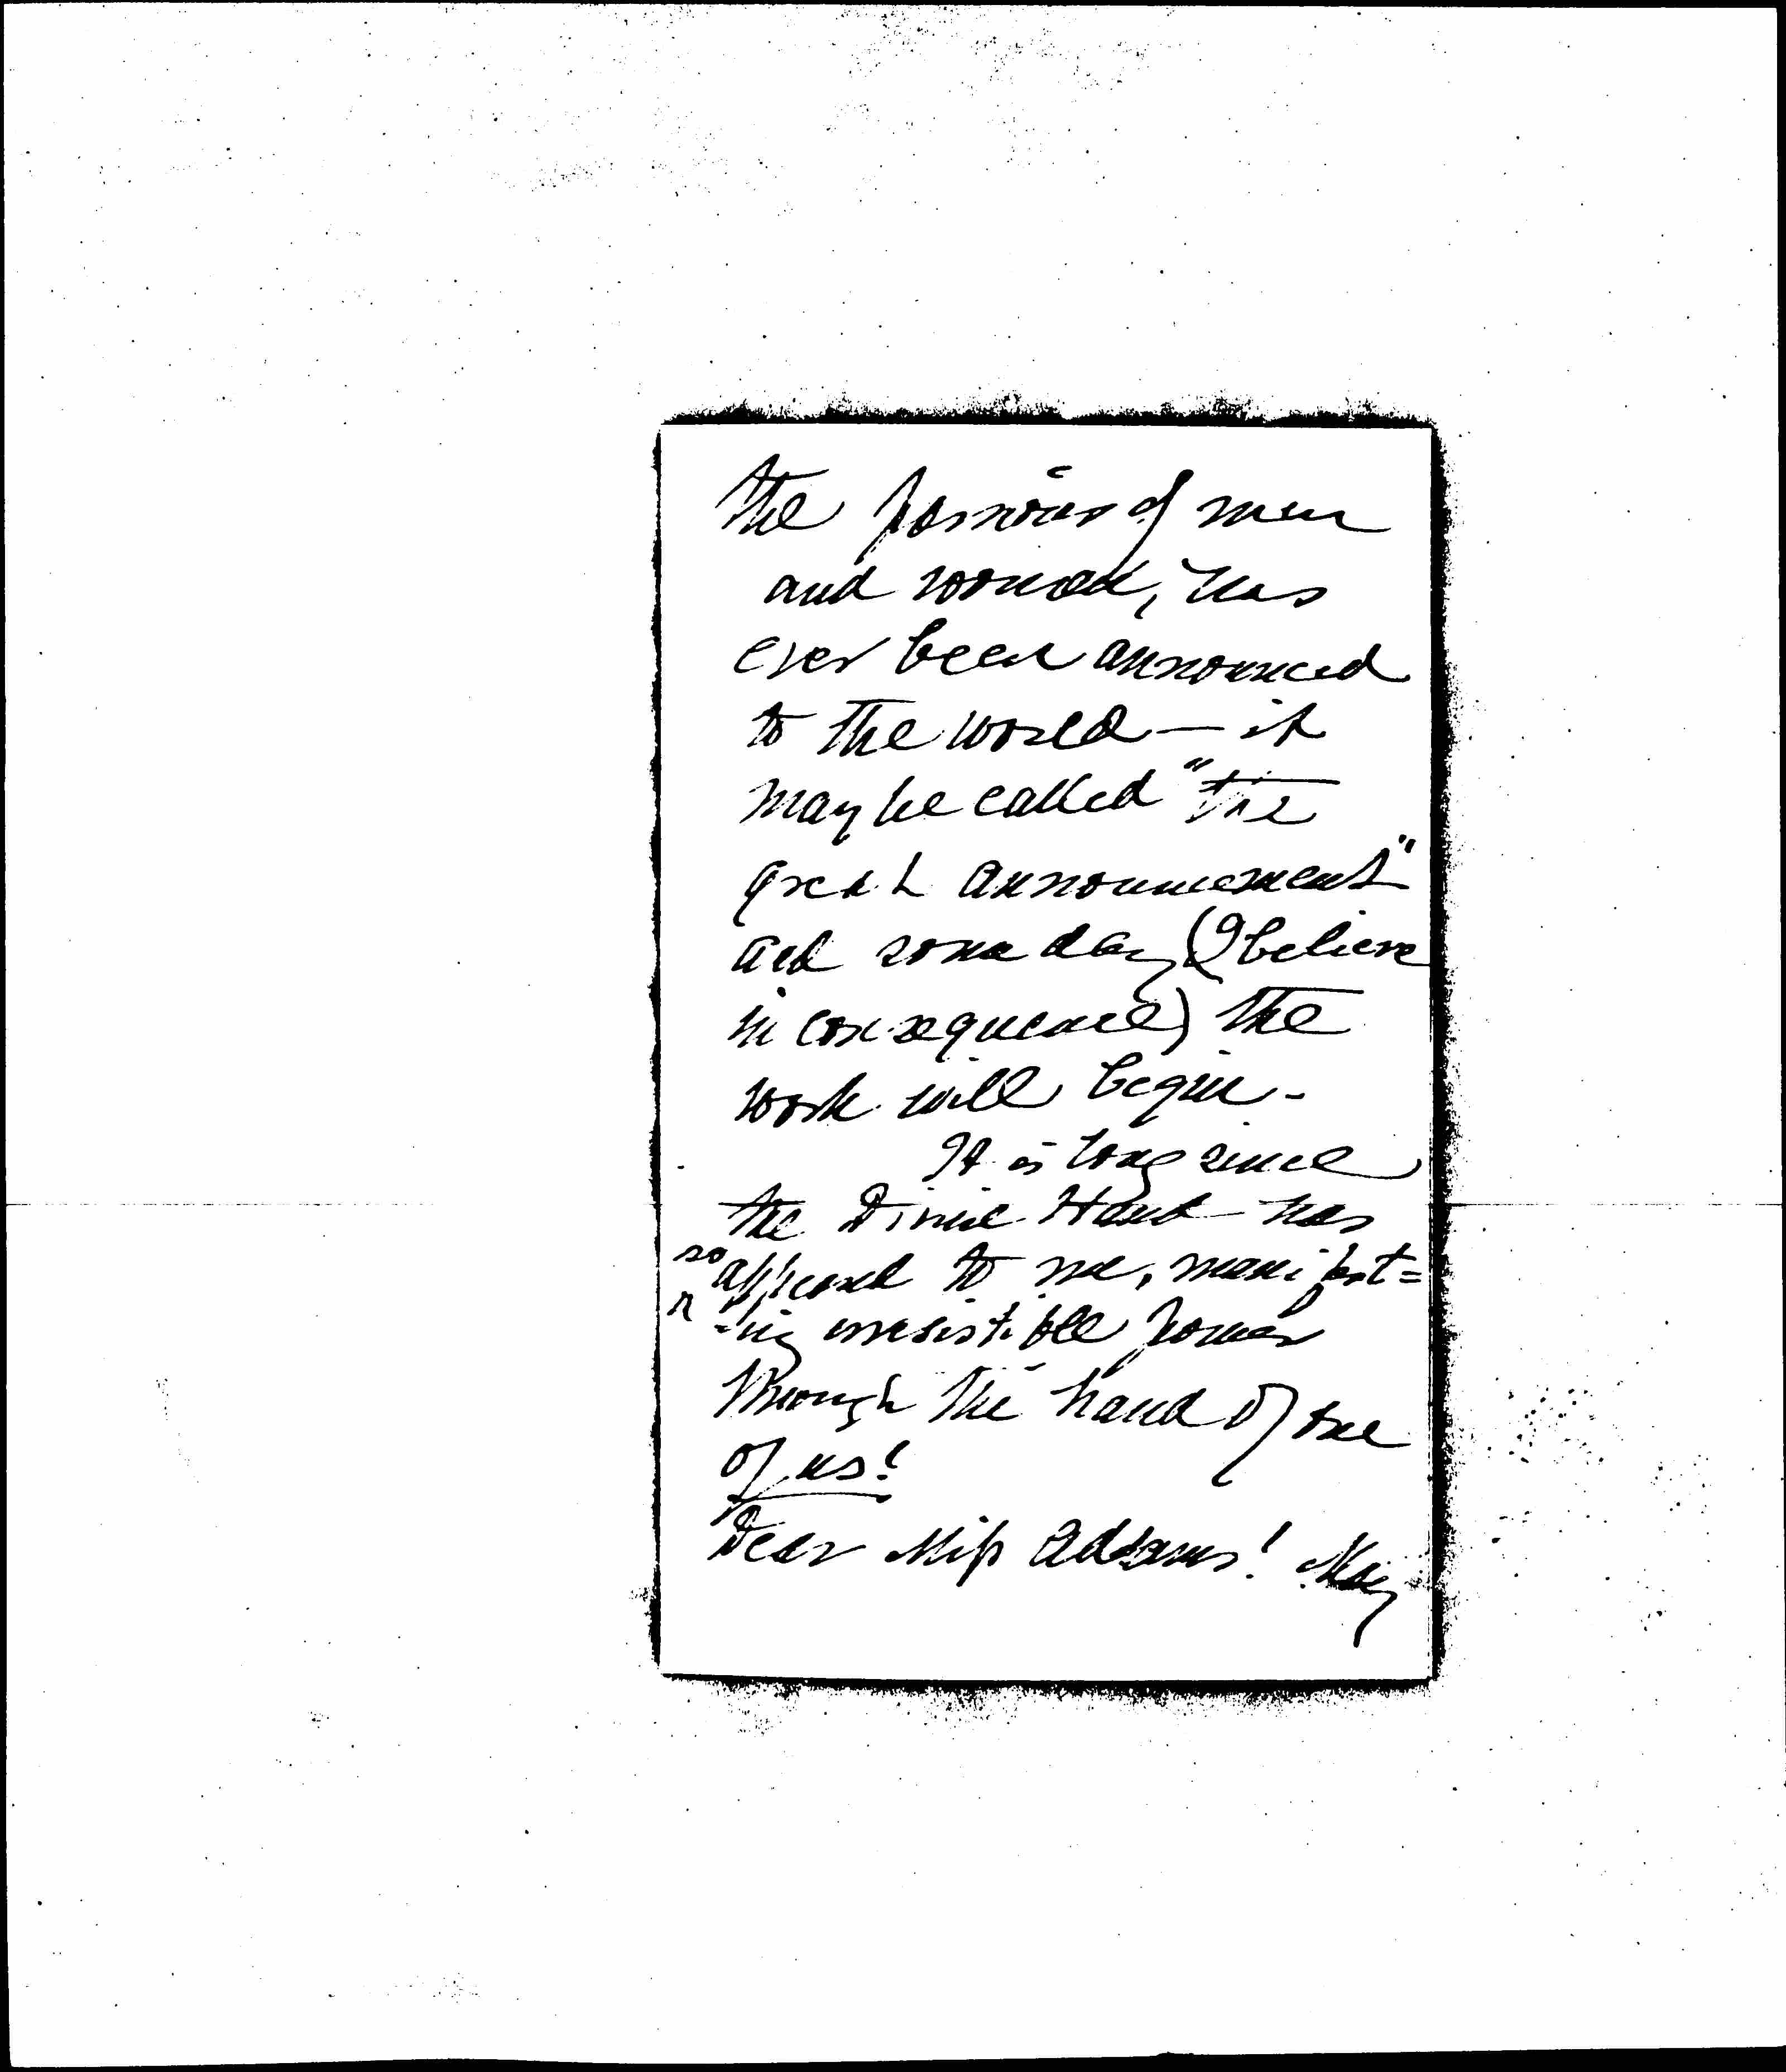 the passions of men
and women, has
ever been announced
to the world — it
may be called "the
great announcement"
and some day (I believe
in consequence) the
work will begin -
It is long since
the Divine Hand has
so appeared to me, manifest=
-ing irresistible power
through the hand of one
of us!
Dear Miss Addams! May